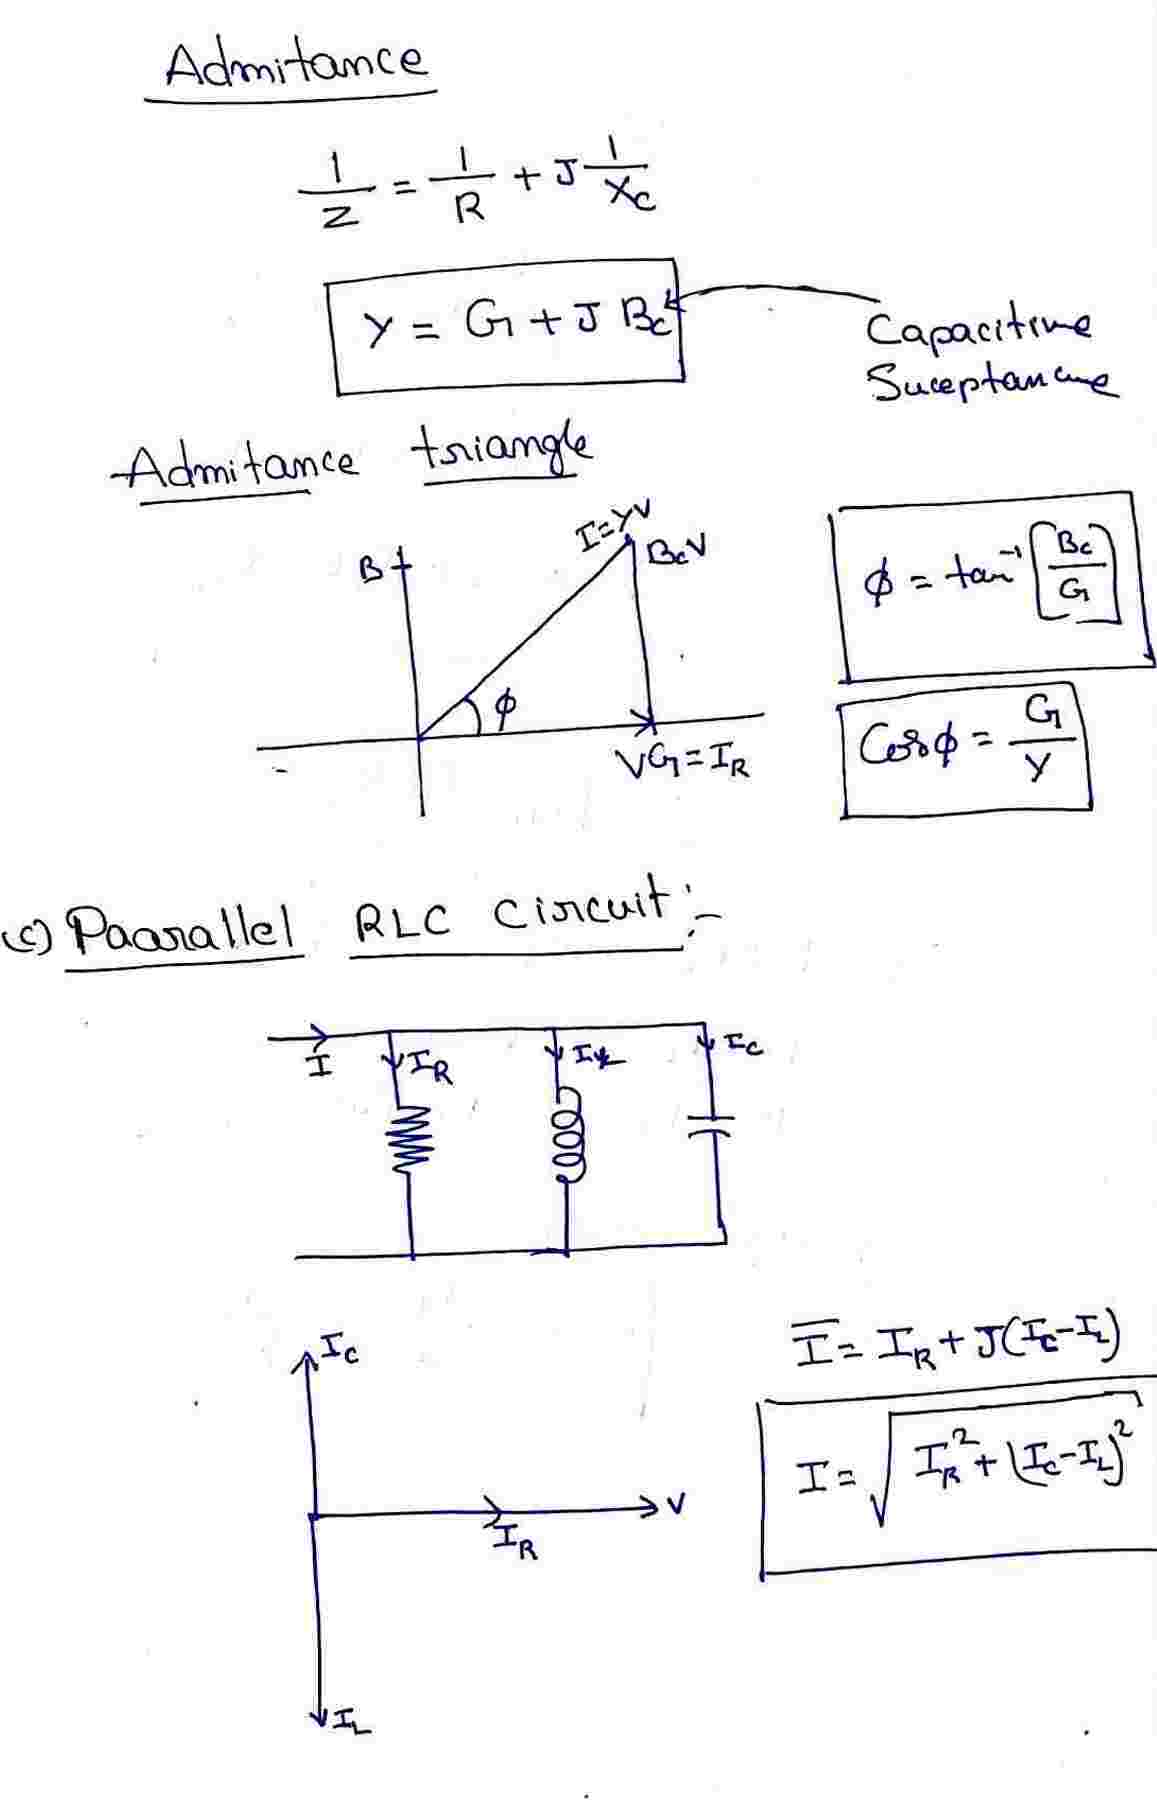 Admitance
1/Z = 1/R + J 1/Xc
Y = G + J Bc
Capacitive
Suceptance
Admitance triangle
I=YV
B+
BcV
ϕ
VG = IR
ϕ = tan⁻¹ [Bc/G]
Cosϕ = G/Y
(c) Paarallel RLC Circuit :-
I
IR
IL
Ic
Ic
I̅ = IR + J(Ic-IL)
I = √(IR² + (Ic-IL)²)
V
IR
IL